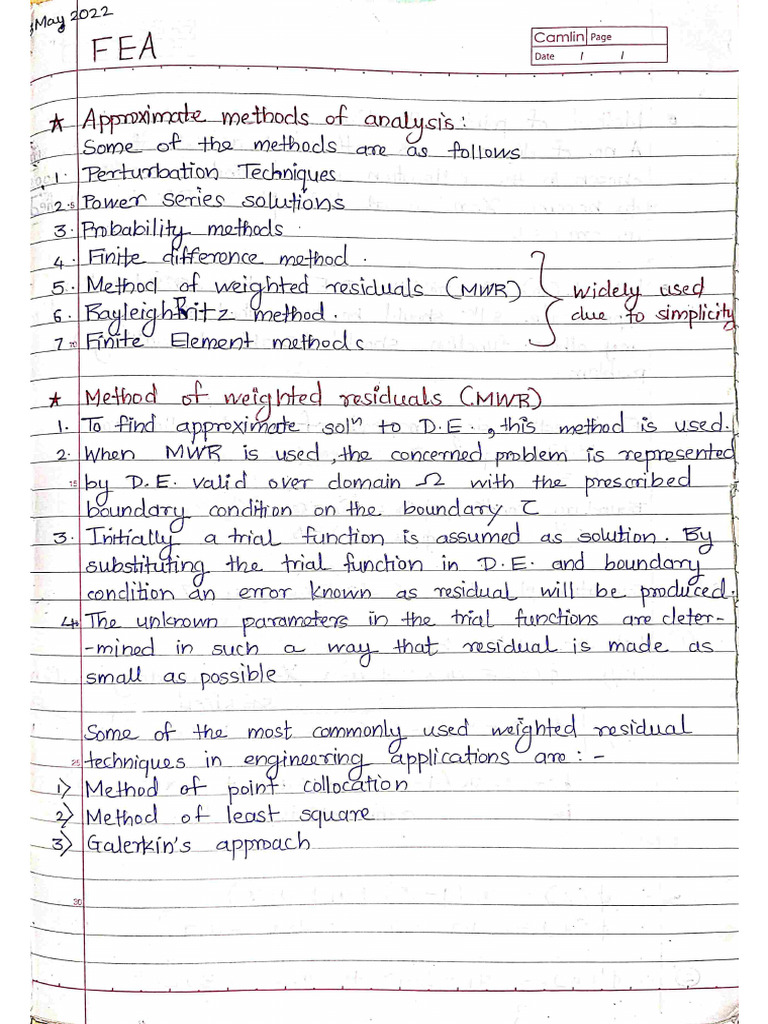 May 2022
FEA
Camlin Page
Date / /
* Approximate methods of analysis:
Some of the methods are as follows
1. Perturbation Techniques
2. Power series solutions
3. Probability methods.
4. Finite difference method.
5. Method of weighted residuals (MWR)
6. Rayleigh Ritz method.
7. Finite Element methods
widely used
due to simplicity
* Method of weighted residuals (MWR)
1. To find approximate solⁿ to D.E., this method is used.
2. When MWR is used, the concerned problem is represented
by D.E. valid over domain Ω with the prescribed
boundary condition on the boundary τ
3. Initially a trial function is assumed as solution. By
substituting the trial function in D.E. and boundary
condition an error known as residual will be produced.
4. The unknown parameters in the trial functions are deter-
-mined in such a way that residual is made as
small as possible
Some of the most commonly used weighted residual
25 techniques in engineering applications are:-
1) Method of point collocation
2) Method of least square
3) Galerkin's approach
30